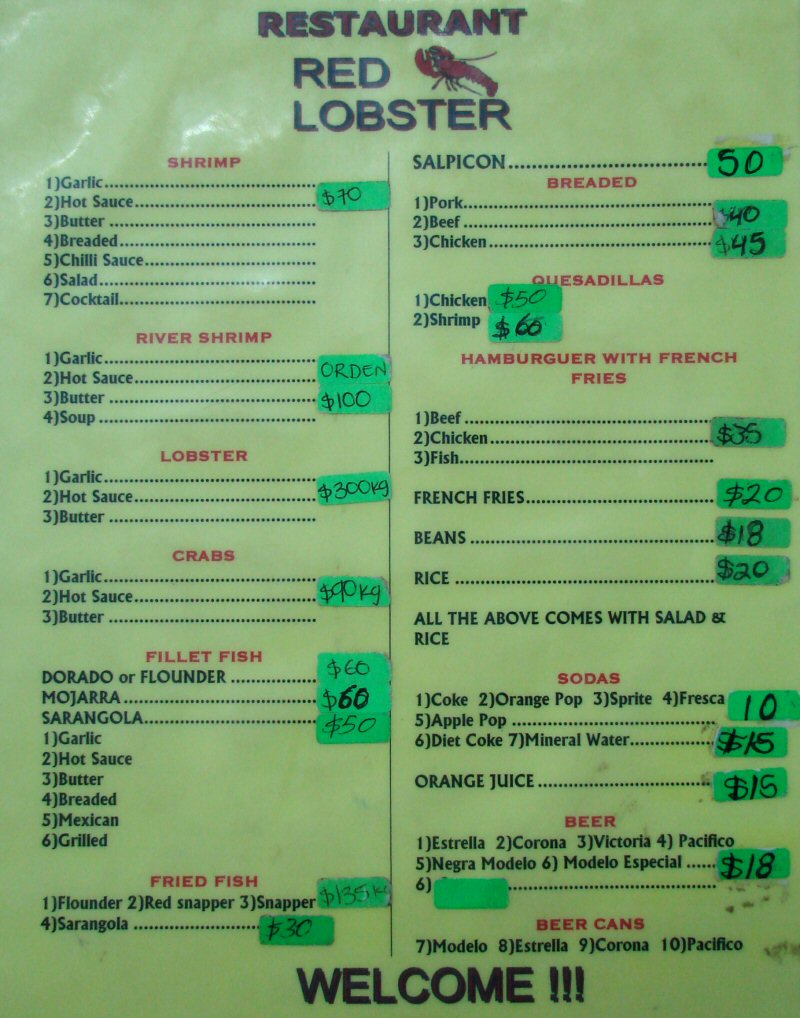 RESTAURANT
RED
LOBSTER
SHRIMP
1)Garlic
2)Hot Sauce $70
3)Butter
4)Breaded
5)Chilli Sauce
6)Salad
7)Cocktail
RIVER SHRIMP
1)Garlic
2)Hot Sauce ORDEN
3)Butter $100
4)Soup
LOBSTER
1)Garlic
2)Hot Sauce $300kg
3)Butter
CRABS
1)Garlic
2)Hot Sauce $90kg
3)Butter
FILLET FISH
DORADO or FLOUNDER $60
MOJARRA $60
SARANGOLA $50
1)Garlic
2)Hot Sauce
3)Butter
4)Breaded
5)Mexican
6)Grilled
FRIED FISH
1)Flounder 2)Red snapper 3)Snapper $135kg
4)Sarangola $30
SALPICON 50
BREADED
1)Pork
2)Beef $40
3)Chicken $45
QUESADILLAS
1)Chicken $50
2)Shrimp $60
HAMBURGUER WITH FRENCH
FRIES
1)Beef
2)Chicken $35
3)Fish
FRENCH FRIES $20
BEANS $18
RICE $20
ALL THE ABOVE COMES WITH SALAD &
RICE
SODAS
1)Coke 2)Orange Pop 3)Sprite 4)Fresca
5)Apple Pop 10
6)Diet Coke 7)Mineral Water $15
ORANGE JUICE $15
BEER
1)Estrella 2)Corona 3)Victoria 4) Pacifico
5)Negra Modelo 6) Modelo Especial $18
6)
BEER CANS
7)Modelo 8)Estrella 9)Corona 10)Pacifico
WELCOME !!!